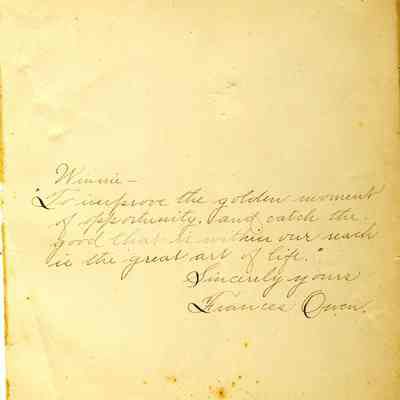 Winnie –
"To improve the golden moment
of opportunity, and catch the
good that is within our reach
is the great art of life."
Sincerely yours
Frances Owen.